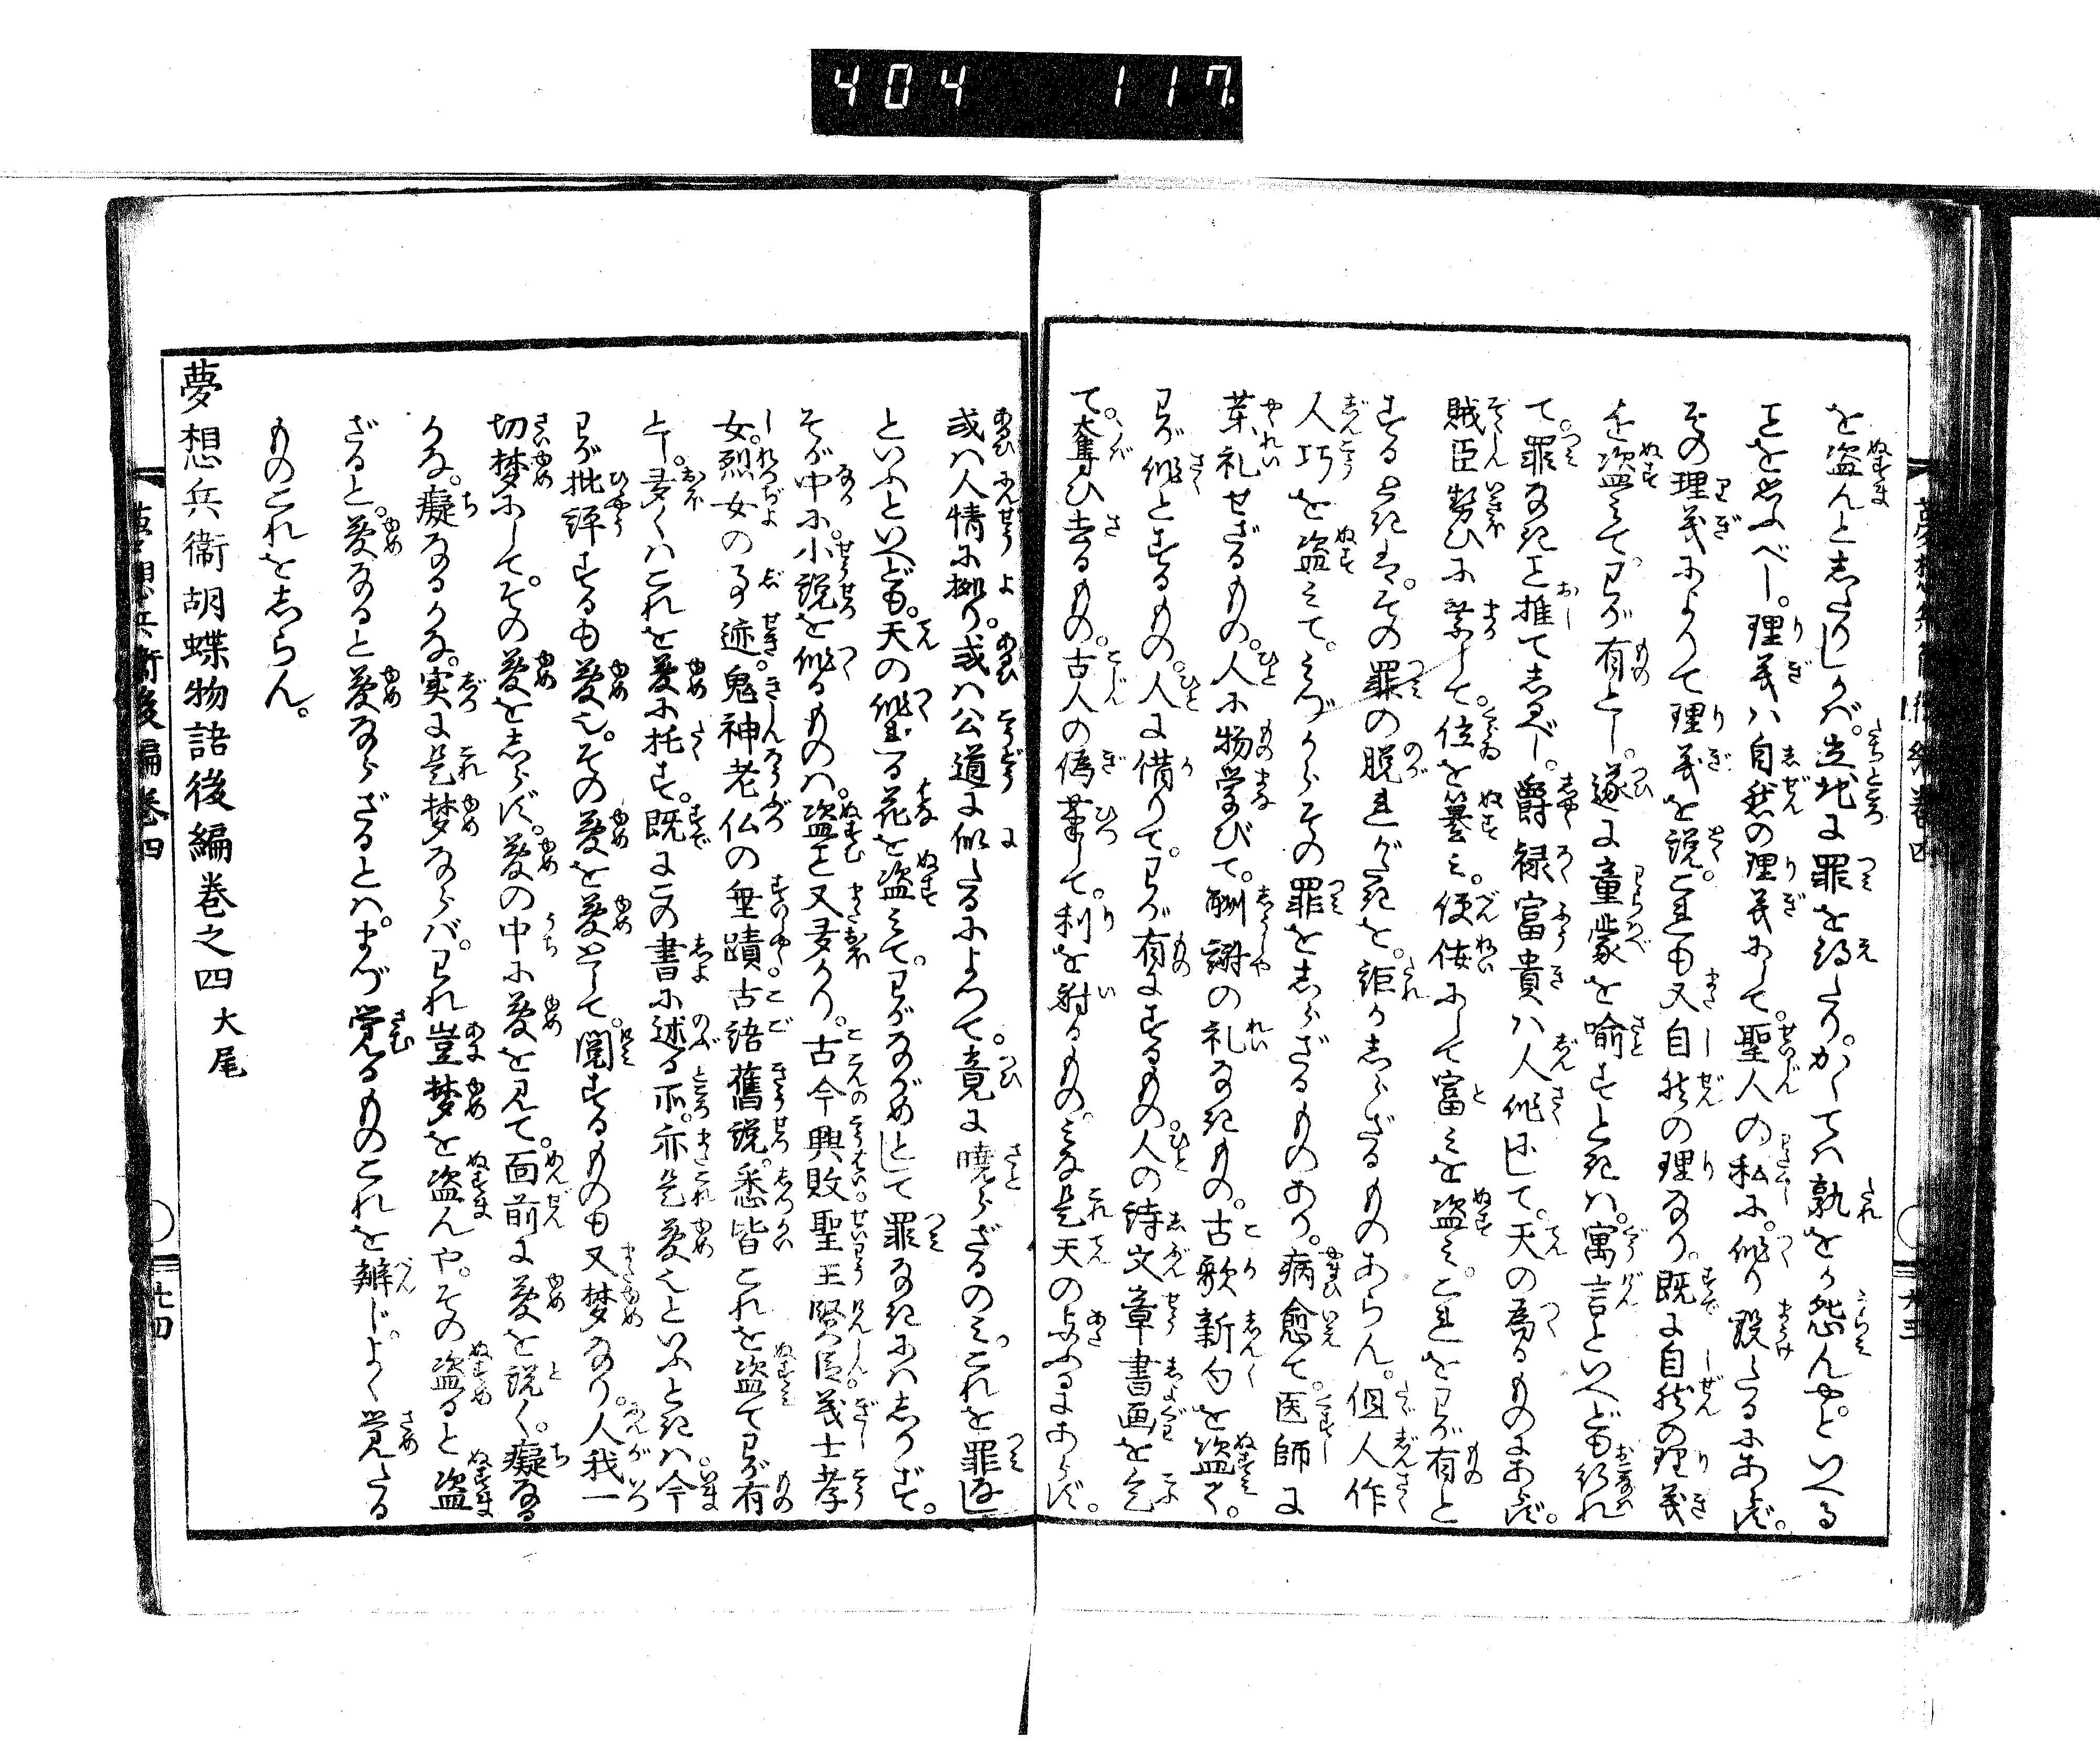 404 117
を盗んとしたりしかば。立地に罪を得たり。かくては孰をか怨んやといへる
ことを思ふべし。理義は自然の理義にして。聖人の私に。作り設たるにあらず。
その理義によりて理義を説。これも又自然の理なり。既に自然の理義
を盗みて。わが有とし。遂に童蒙を喩すときは。寓言といへども行れ
て。罪なきこと推てしるべし。爵禄富貴は人作にして。天の為るものにあらず。
賊臣勢ひに乗して。位を簒み。便佞にして富を盗み。これをわが有と
するときは。その罪の脱れがたきを。誰かしらざるものあらん。但人作
人巧を盗みて。みづからその罪をしらざるものあり。病愈て。医師に
薬礼せざるもの。人に物学びて。酬謝の礼なきもの。古歌新句を盗て。
わが作とするもの。人に借りて。わが有にするもの。人の詩文章書画を乞
て。奪ひ去るもの。古人の偽筆して。利を射るもの。みな是天の与ふるにあらず。
或は人情に拠り。或は公道に似たるによつて。竟に暁らざるのみ。これを罪なし
といふといへども。天の作る花を盗みて。わがながめとして罪なきにはしかず。
そが中に。小説を作るものは。盗こと又多かり。古今興敗聖王賢臣義士孝
女。烈女の事迹。鬼神老仏の垂蹟古語舊説。悉皆これを盗てわが有
とし。多くはこれを夢に托す。既にこの書に述る所。亦是夢也といふときは。今
わが批評するも夢也。その夢を夢として。閲するものも又梦なり。人我一
切梦にして。その夢をしらず。夢の中に夢を見て。面前に夢を説く。癡なる
かな。癡なるかな。実に是梦ならば。われ豈梦を盗んや。その盗ると盗
ざると。夢なると夢ならざるとは。まづ覚るものこれを辨じ。よく覚たる
ものこれをしらん。
夢想兵衞胡蝶物語後編巻之四 大尾
夢想兵衞後編巻四
七四